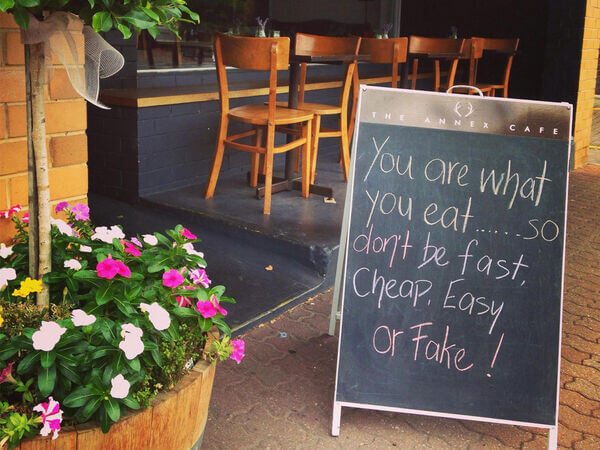 THE ANNEX CAFE
You are what
you eat......so
don't be fast,
Cheap, Easy
or Fake!